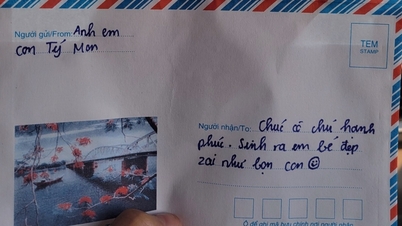 Người gửi/From: Anh em
con Tý Mon
TEM
STAMP
Người nhận/To: Chúc cô chú hạnh
phúc. Sinh ra em bé đẹp
zai như bọn con ☺
Ô để ghi mã bưu chính nơi người nhận